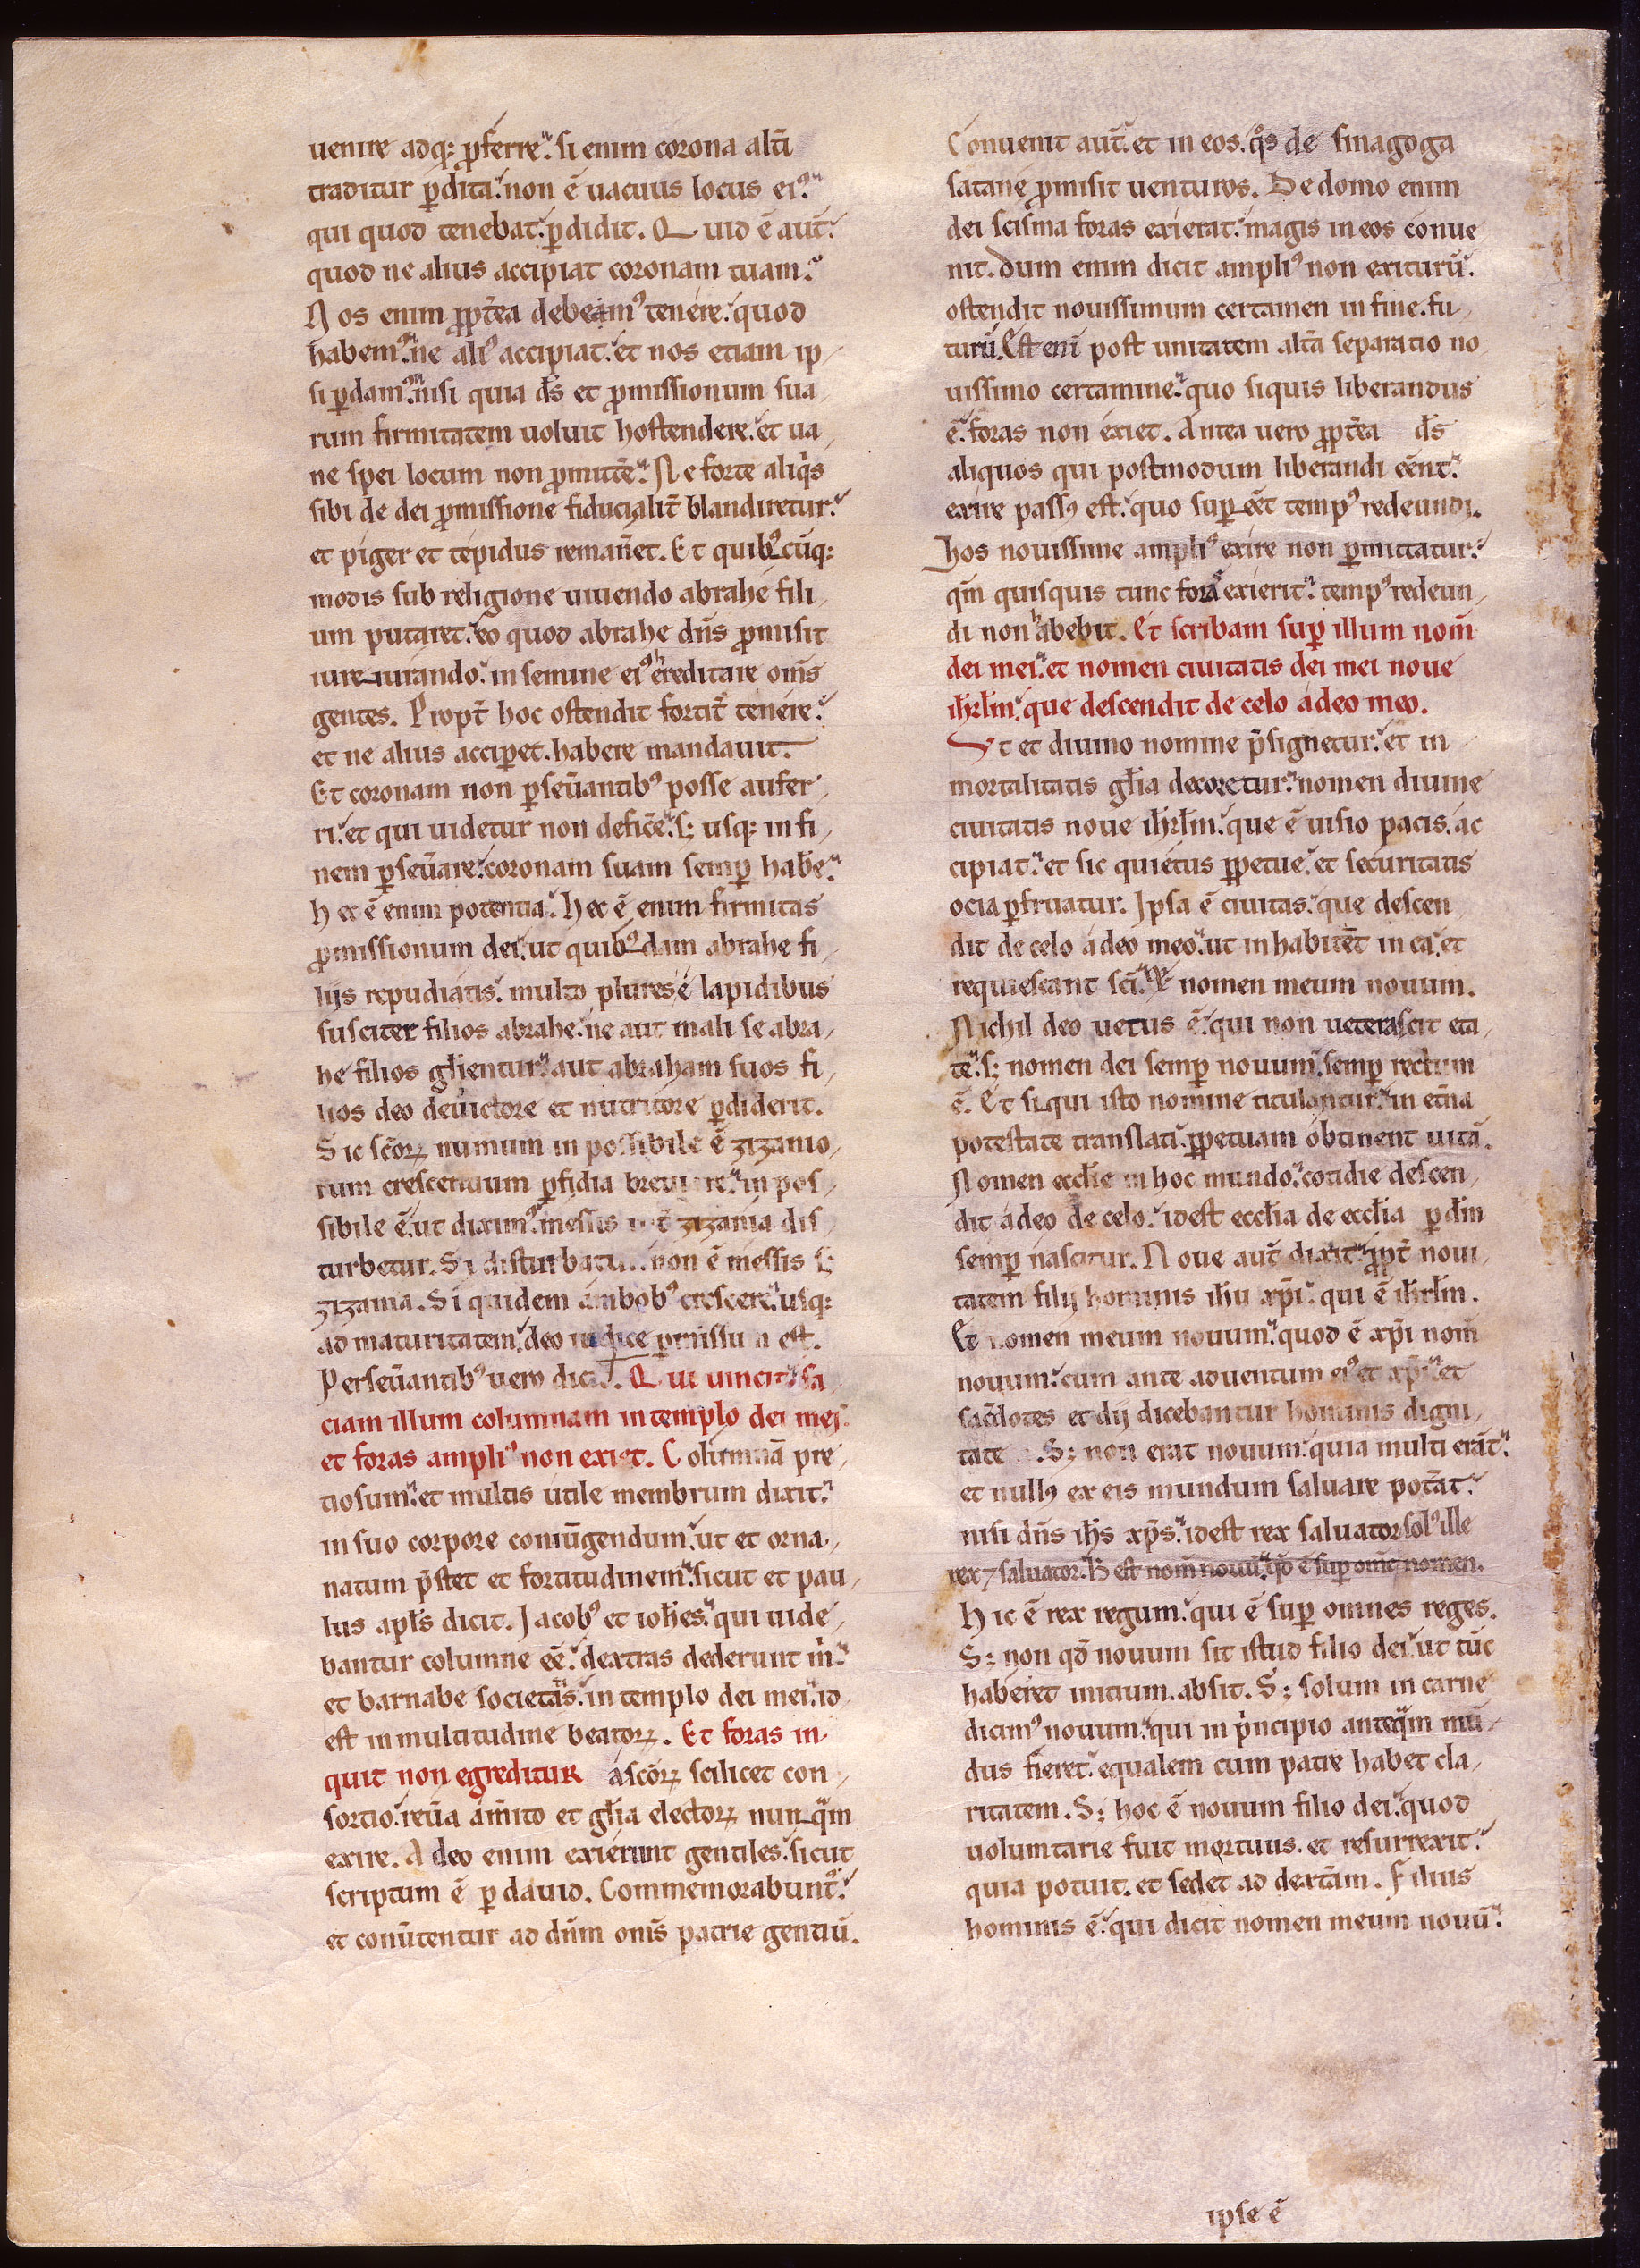 uenire adq; p̱ferre. si enim corona alt̄i
traditur p̱dita. non ē uacuus locus ei᾽.
qui quod tenebat. p̱didit. Quid ē aut̄.
quod ne alius accipiat coronam tuam.
Nos enim p̱pt̄ea debeam᾽ tenere. quod
habem᾽. ne ali᾽ accipiat. et nos etiam ip
si p̱dam᾽. nisi quia d̄s et p̱missionum sua
rum firmitatem uoluit hostendere. et ua
ne spei locum non p̱mitt̄e. Ne forte aliq̇s
sibi de dei p̱missione fiducialit̄ blandiretur.
et piger et tepidus remañet. Et quib᾽cūq;
modis sub religione uiuendo abrahe fili
um putaret. eo quod abrahe dn̄s p̱misit
iureiurando. in semine ei᾽ hereditare om̄s
gentes. Propt̄ hoc ostendit fortit̄ tenere.
et ne alius accip̱et. habere mandauit.
Et coronam non p̱seūantib᾽ posse aufer
ri. et qui uidetur non defic̄e. s; usq; in fi
nem p̱seūare. coronam suam semp̱ hab̄e.
hec ē enim potentia. hec ē enim firmitas
p̱missionum dei. ut quib᾽dam abrahe fi
lijs repudiatis. multo plures é lapidibus
suscitet filios abrahe. ne aut mali se abra
he filios gl̄ientur. aut abraham suos fi
lios deo deuictore et nutritore p̱diderit.
Sic sc̄oꝝ numum in possibile ē zizanio
rum crescentium p̱fidia breuiare. in pos
sibile ē. ut dixim᾽. messis int̄ zizania dis
turbetur. Si disturbatur. non ē messis s;
zizania. Si quidem ambob᾽ crescere. usq;
ad maturitatem. deo iudice p̱missum est.
Perseūantib᾽ uero dicit. Qui uincit. fa
ciam illum columnam in templo dei mei.
et foras ampli᾽ non exiet. Columnā pre
tiosum. et multis utile membrum dixit.
in suo corpore coniūgendum. ut et orna
natum p̄stet et fortitudinem. sicut et pau
lus apl̄s dicit. Jacob᾽ et ioh̄es. qui uide
bantur columne eē. dextras dederunt m̄.
et barnabe societatis. in templo dei mei. id
est in multitudine beatoꝝ. Et foras in
quit non egreditur á sc̄oꝝ scilicet con
sortio. reūa am̄ito et gl̄ia electoꝝ nunq̄m
exire. A deo enim exierunt gentiles. sicut
scriptum ē p̱ dauid. Commemorabunt᾽.
et conūtentur ad dn̄m om̄s patrie gentiū.
Conuenit aut̄. et in eos. q̊s de sinagoga
satane p̱misit uenturos. De domo enim
dei scisma foras exierat. magis in eos conue
nit. dum enim dicit ampli᾽ non exiturū.
ostendit nouissimum certamen in fine. fu
turū. Est enī post unitatem alt̄a separatio no
uissimo certamine. quo siquis liberandus
ē. foras non exiet. Antea uero p̱pt̄ea d̄s
aliquos qui postmodum liberandi eēnt.
exire pass᾽ est. quo sup̱ eēt temp᾽ redeundi.
hos nouissime ampli᾽ exire non p̱mittatur.
qm̄ quisquis tunc foras exierit. temp᾽ redeun
di non habebit. Et scribam sup̱ illum nom̄
dei mei. et nomen ciuitatis dei mei noue
ih̄rl̄m. que descendit de celo a deo meo.
Ut et diuino nomine p̄signetur. et in
mortalitatis gl̄ia decoretur. nomen diuine
ciuitatis noue ih̄rl̄m. que ē uisio pacis. ac
cipiat. et sic quietus p̱petue. et securitatis
ocia p̱fruatur. Ipsa ē ciuitas. que descen
dit de celo a deo meo. ut inhabitēt in ea. et
requiescant sc̄i. Et nomen meum nouum.
Nichil deo uetus ē. qui non ueterascit eta
te. s; nomen dei semp̱ nouum. semp̱ rectum
ē. Et si qui isto nomine titulantur. in et̄na
potestate translati. p̱petuam obtinent uitā.
Nomen eccl̄ie in hoc mundo. cotidie descen
dit a deo de celo. idest eccl̄ia de eccl̄ia p̱ d̄m
semp̱ nascitur. Noue aut̄ dixit. p̱pt̄ noui
tatem filij hominis ih̄u xp̄i. qui ē ih̄rl̄m.
Et nomen meum nouum. quod ē xp̄i nom̄
nouum. cum ante aduentum ei᾽ et xp̄i. et
sac̄dotes et dij dicebantur hominis digni
tate. S; non erat nouum. quia multi erāt.
et null᾽ ex eis mundum saluare pot̄at.
nisi dn̄s ih̄s xp̄s. idest rex saluator sol᾽ ille
rex ⁊ saluator. h̄ est nom̄ nouū. qd̄ ē sup̱ om̄e nomen.
Hic ē rex regum. qui ē sup̱ omnes reges.
S; non qd̄ nouum sit istud filio dei. ut tūc
haberet initium. absit. S; solum in carne
dicim᾽ nouum. qui in p̍ncipio anteq̄m mū
dus fieret. equalem cum patre habet cla
ritatem. S; hoc ē nouum filio dei. quod
uoluntarie fuit mortuus. et resurrexit.
quia potuit. et sedet ad dext̄am. Filius
hominis ē. qui dicit nomen meum nouū.
ipse ē